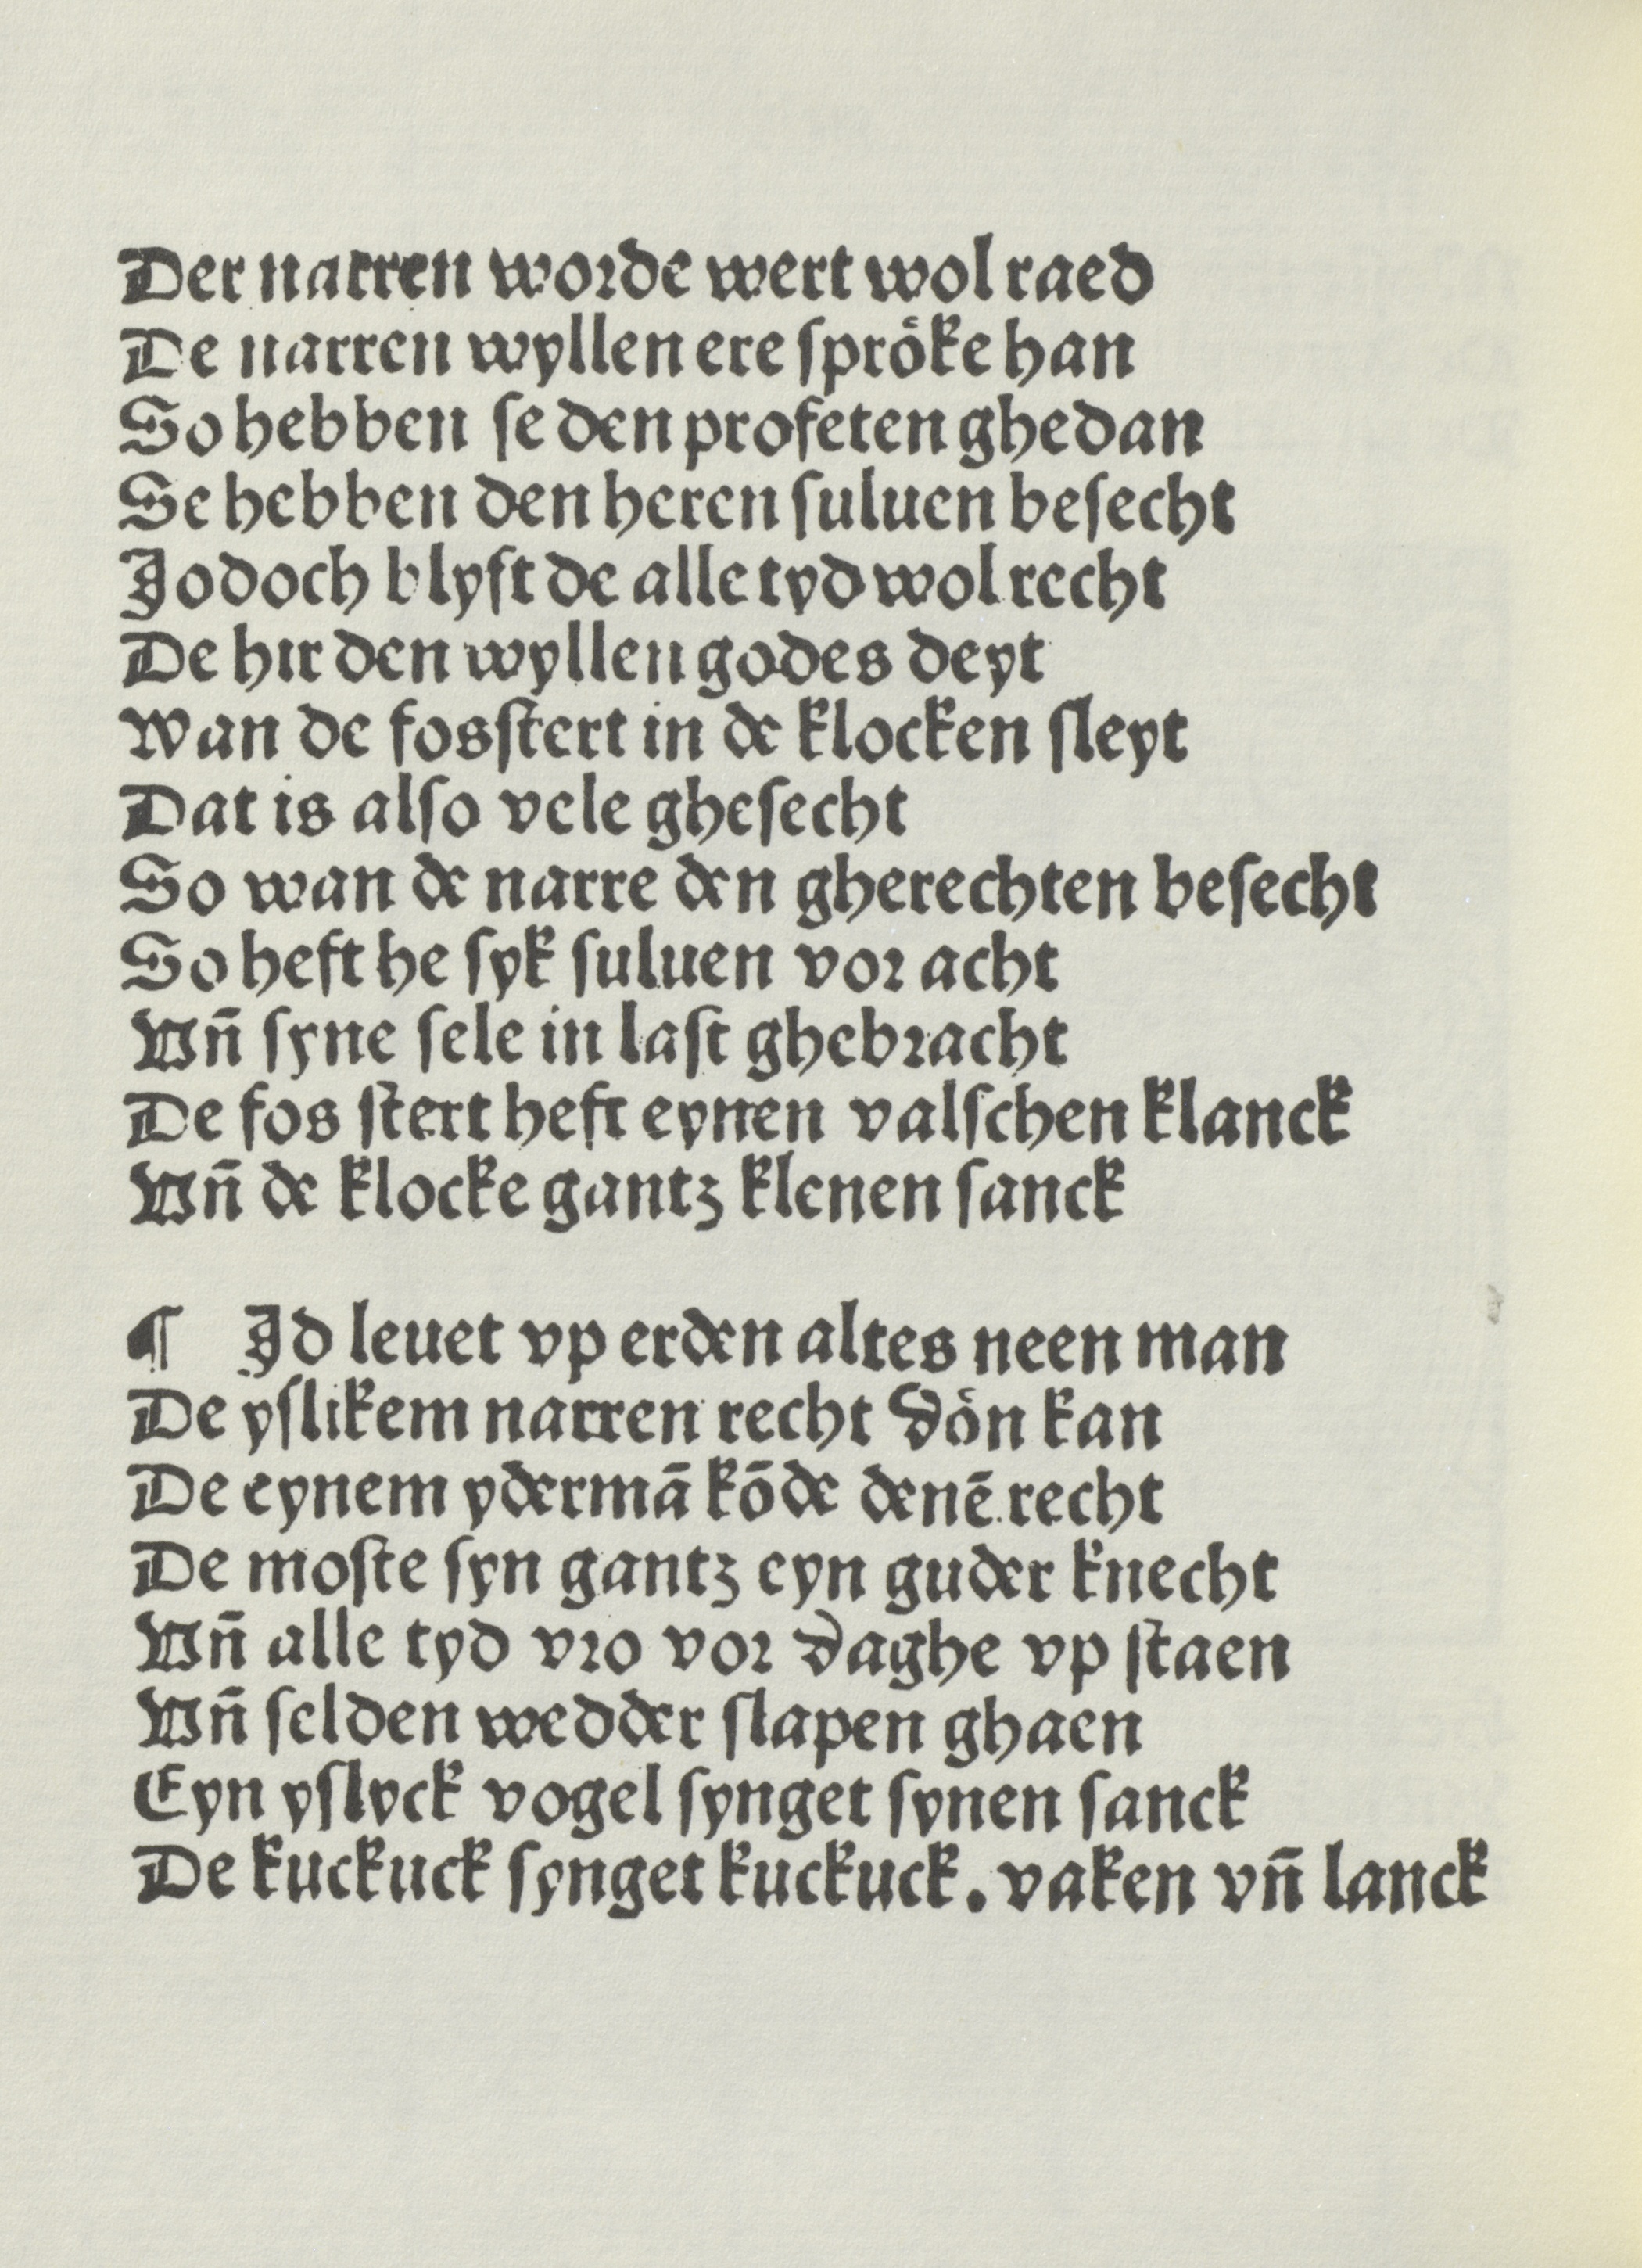 Der narren worde wert wol raed
De narren wyllen ere ſproͤke han
So hebben ſe den profeten ghedan
Se hebben den heren ſuluen beſecht
Jodoch blyft de alle tyd wol recht
De hir den wyllen godes deyt
Wan de fosſtert in de klocken ſleyt
Dat is alſo vele gheſecht
So wan de narre den gherechten beſecht
So heft he ſyk ſuluen vor acht
Vn̄ ſyne ſele in laſt ghebracht
De fos ſtert heft eynen valſchen klanck
Vn̄ de klocke gantz klenen ſanck
¶ Jd leuet vp erden altes neen man
De yſlikem narren recht doͤn kan
De eynem ydermā kōde denē recht
De moſte ſyn gantz eyn guder knecht
Vn̄ alle tyd vro vor daghe vp ſtaen
Vn̄ ſelden wedder ſlapen ghaen
Eyn yſlyck vogel ſynget ſynen ſanck
De kuckuck ſynget kuckuck. vaken vn̄ lanck